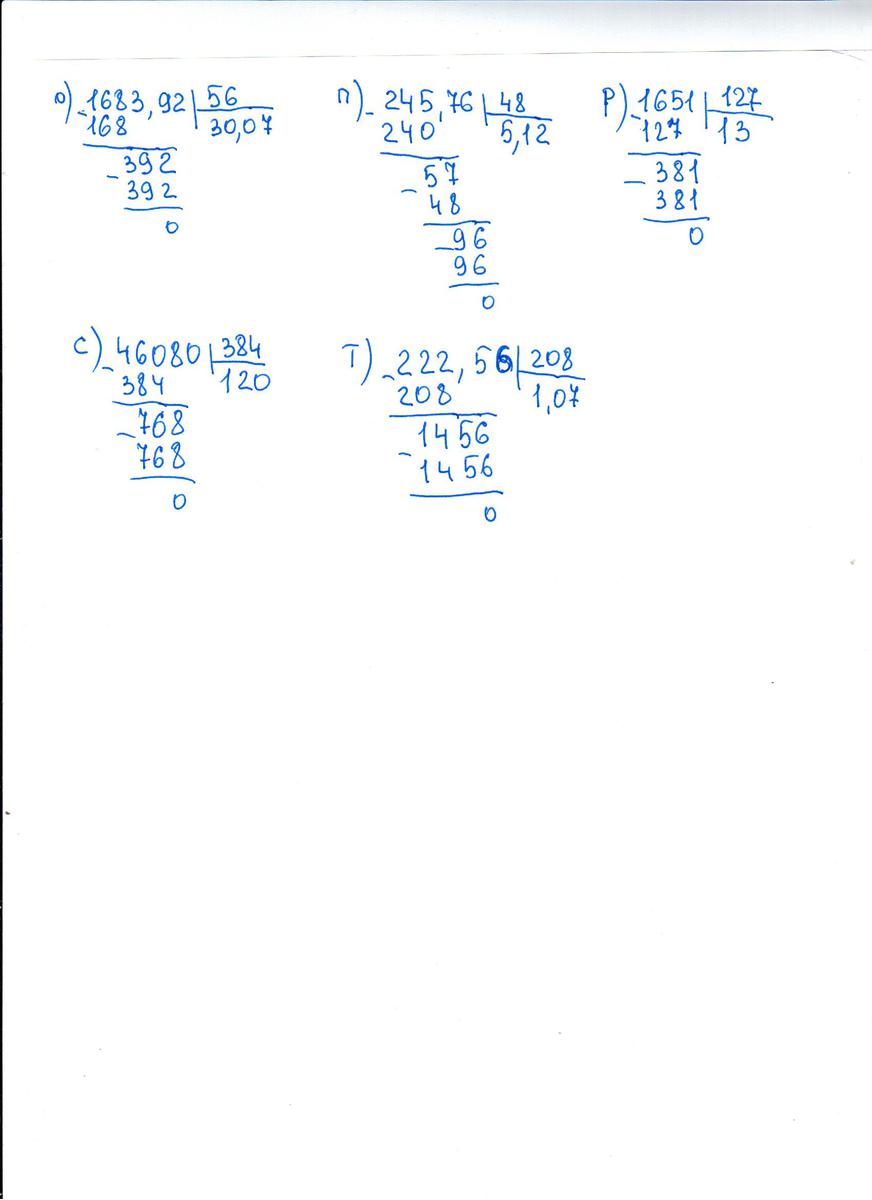 О) -1683,92 | 56
168 30,07
-392
392
0
П) - 245,76 | 48
240 5,12
- 57
48
-96
96
0
Р) -1651 | 127
127 13
- 381
381
0
С) -46080 | 384
384 120
-768
768
0
Т) -222,56 | 208
208 1,07
- 1456
1456
0